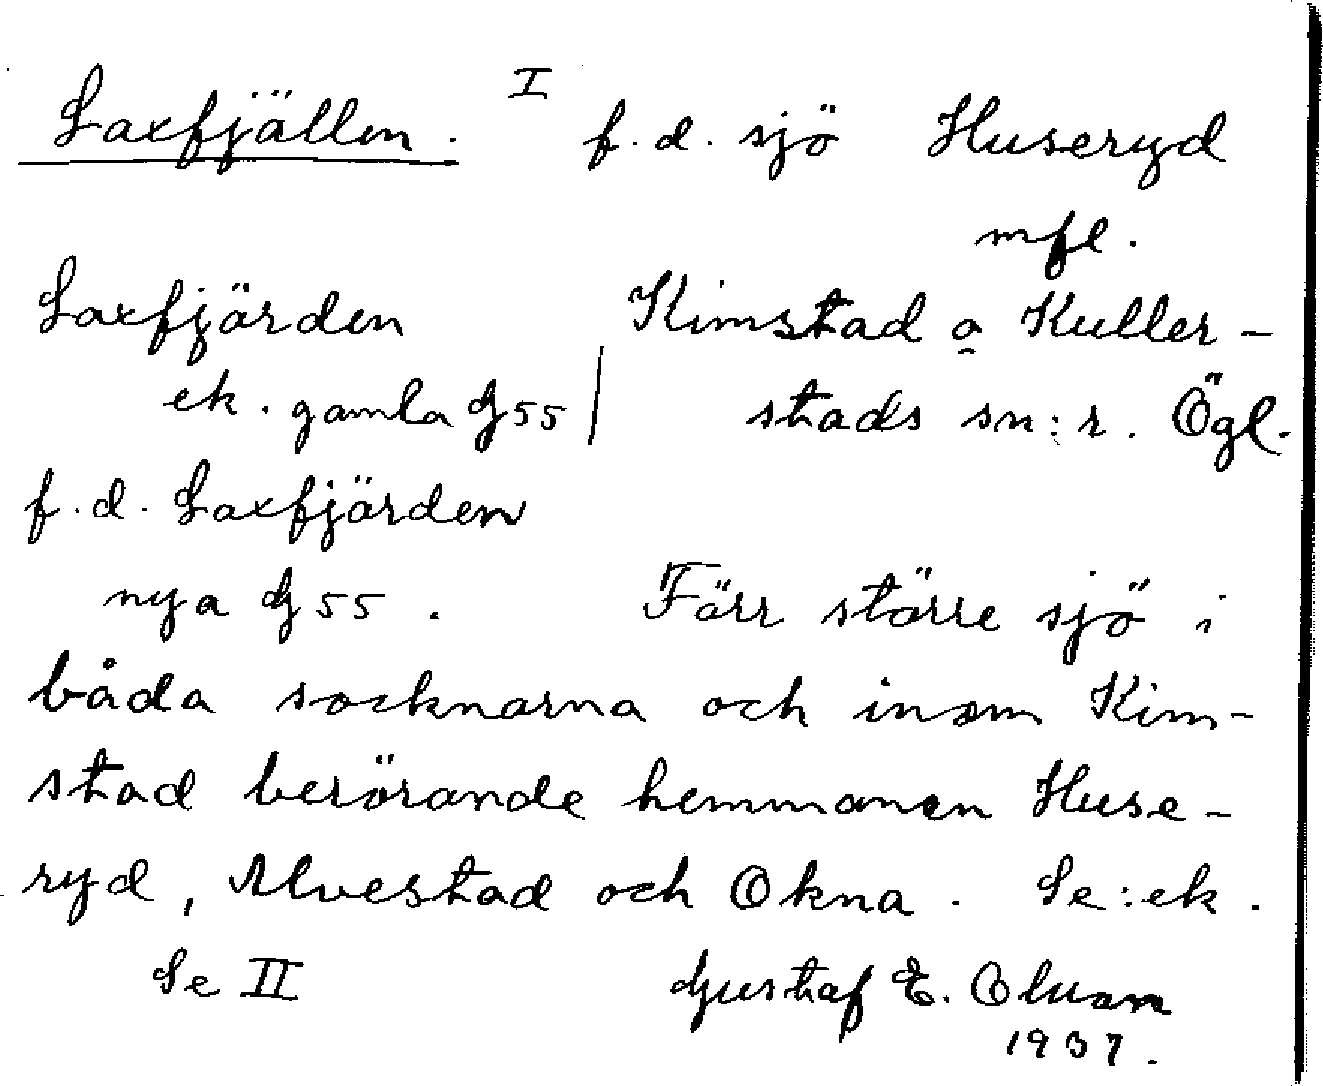 I
Laxfjällen. f.d. sjö Huseryd
mfl.
Laxfjärden Kimstad o Kuller-
ek. gamla G 55 | stads sn:r. Ögl.
f.d. Laxfjärden
nya G 55. Förr större sjö i
båda socknarna och inom Kim-
stad berörande hemmanen Huse-
ryd, Alvestad och Okna. Se: ek.
Se II Gustaf E. Olsson
1937.